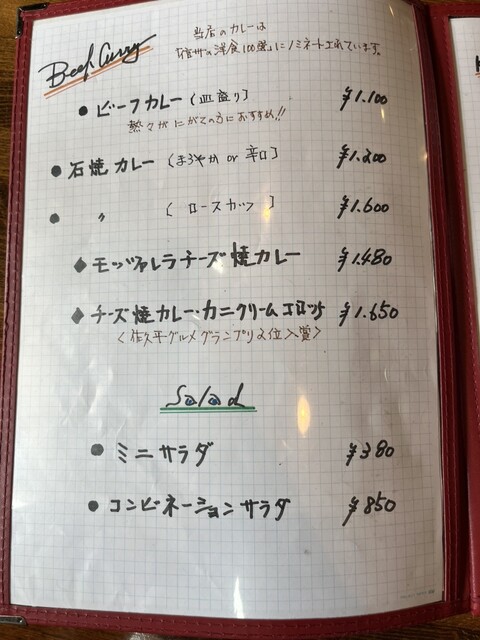 Beef Curry
当店のカレーは
信州の洋食100選にノミネートされています。
● ビーフカレー (皿盛り) ¥1.100
熱々がにがての方におすすめ!!
● 石焼カレー (まろやか or 辛口) ¥1.200
● 〃 ( ロースカツ ) ¥1.600
◆ モッツァレラチーズ焼カレー ¥1.480
◆ チーズ焼カレー・カニクリームコロッケ ¥1.650
<佐久平グルメグランプリ2位入賞>
Salad
● ミニサラダ ¥380
● コンビネーションサラダ ¥850